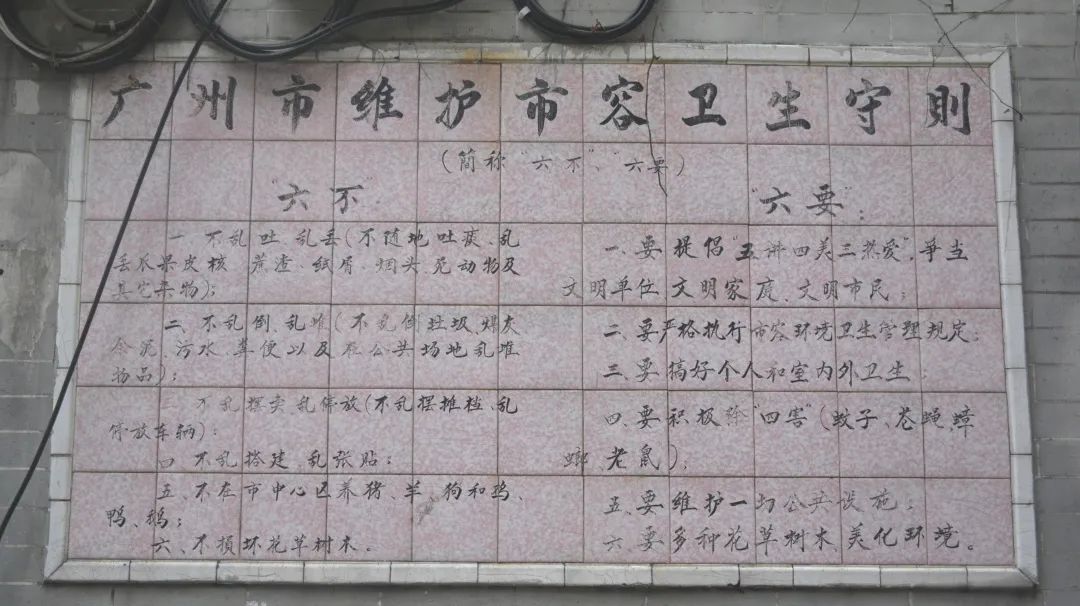 广州市维护市容卫生守則
(简称"六不"、"六要")
"六不"
一、不乱吐、乱丢(不随地吐痰、乱
丢瓜果皮核、蔗渣、纸屑、烟头、死动物及
其它杂物);
二、不乱倒、乱堆(不乱倒垃圾、煤灰
余泥、污水、粪便以及在公共场地乱堆
物品);
三、不乱摆卖、乱停放(不乱摆摊档、乱
停放车辆);
四、不乱搭建、乱张贴;
五、不在市中心区养猪、羊、狗和鸡、
鸭、鹅;
六、不損坏花草树木。
"六要":
一、要提倡"五讲四美三热爱",争当
文明单位、文明家庭、文明市民;
二、要严格执行市容环境卫生管理规定;
三、要搞好个人和室内外卫生;
四、要积极除"四害"(蚊子、苍蝇、蟑
螂、老鼠);
五、要维护一切公共设施;
六、要多种花草树木,美化环境。